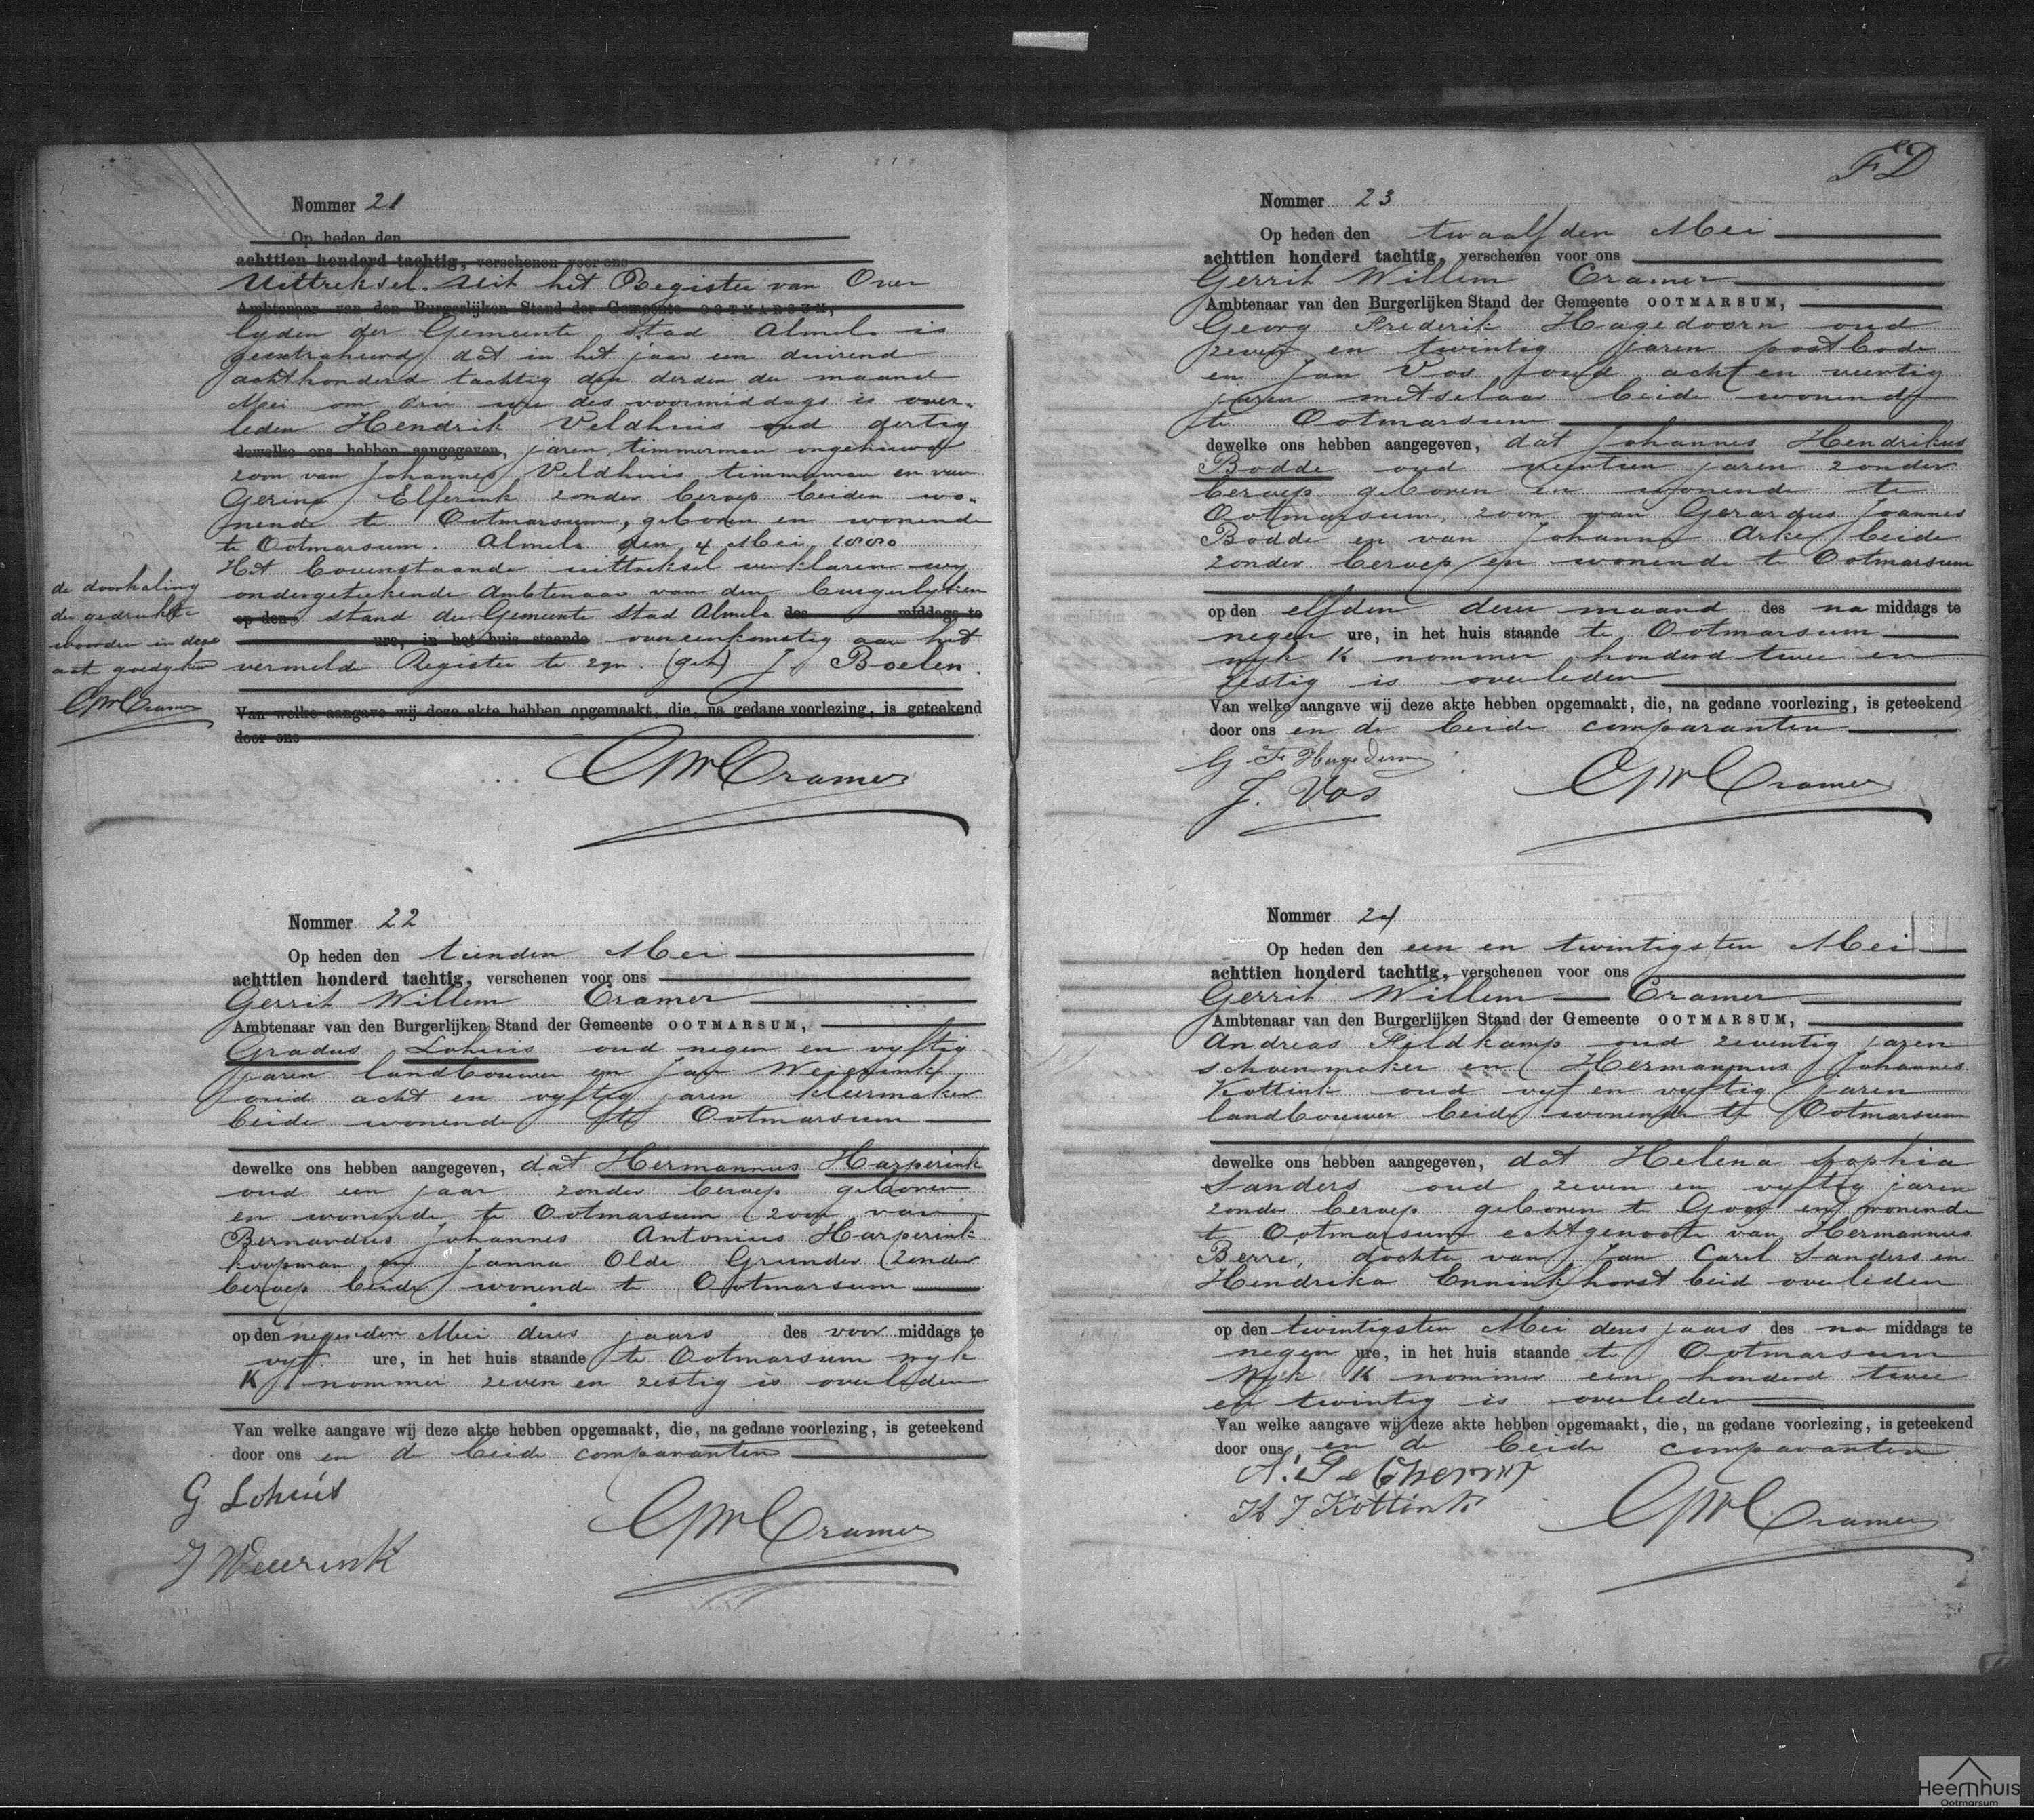 Nommer 21
Op heden den
achttien honderd tachtig, verschenen voor ons
Uittreksel. Uit het Register van Over
Ambtenaar van den Burgerlijken Stand der Gemeente OOTMARSUM,
lyden der Gemeente Stad Almelo is
geextraheerd dat in het jaar een duizend
achthonderd tachtig den derden der maand
Mei om drie ure des voormiddags is over-
leden Hendrik Veldhuis oud dertig
dewelke ons hebben aangegeven, jaren timmerman ongehuwd
zoon van Johannes Veldhuis timmerman en van
Gerina Elferink zonder beroep beiden wo-
nende te Ootmarsum, geboren en wonende
te Ootmarsum. Almelo den 4 Mei 1880
Het bovenstaande uittreksel verklaren wy
ondergeteekende Ambtenaar van den burgerlyken
op den stand der Gemeente Stad Almelo des middags te
ure, in het huis staande overeenkomstig aan het
vermelde Register te zyn. (get) J Boelen.
Van welke aangave wij deze akte hebben opgemaakt, die, na gedane voorlezing, is geteekend
door ons
GWCramer
de doorhaling
der gedrukte
woorden in deze
act goedgekeurd
GWCramer
Nommer 22
Op heden den tienden Mei
achttien honderd tachtig, verschenen voor ons
Gerrit Willem Cramer
Ambtenaar van den Burgerlijken Stand der Gemeente OOTMARSUM,
Gradus Lohuis oud negen en vyftig
jaren landbouwer en Jan Weierink
oud acht en vyftig jaren kleermaker
beide wonende te Ootmarsum
dewelke ons hebben aangegeven, dat Hermannus Harperink
oud een jaar zonder beroep geboren
en wonende te Ootmarsum zoon van
Bernardus Johannes Antonius Harperink
koopman en Janna Olde Grunder zonder
beroep beide wonende te Ootmarsum
op den negenden Mei dezes jaars des voor middags te
vyf ure, in het huis staande te Ootmarsum wyk
K nommer zeven en zestig is overleden
Van welke aangave wij deze akte hebben opgemaakt, die, na gedane voorlezing, is geteekend
door ons en de beide comparanten
G Lohuis
J Weierink
GWCramer
Nommer 23
Op heden den twaalfden Mei
achttien honderd tachtig, verschenen voor ons
Gerrit Willem Cramer
Ambtenaar van den Burgerlijken Stand der Gemeente OOTMARSUM,
Georg Frederik Hagedoorn oud
zeven en twintig jaren postbode
en Jan Vos oud acht en veertig
jaren metselaar beide wonende
te Ootmarsum
dewelke ons hebben aangegeven, dat Johannes Hendrikus
Bodde oud veertien jaren zonder
beroep geboren en wonende te
Ootmarsum, zoon van Gerardus Joannes
Bodde en van Johanna Arke beide
zonder beroep en wonende te Ootmarsum
op den elfden dezer maand des na middags te
negen ure, in het huis staande te Ootmarsum
wyk K nommer honderd twee en
zestig is overleden
Van welke aangave wij deze akte hebben opgemaakt, die, na gedane voorlezing, is geteekend
door ons en de beide comparanten
G F Hagedoorn
J. Vos
GWCramer
Nommer 24
Op heden den een en twintigsten Mei
achttien honderd tachtig, verschenen voor ons
Gerrit Willem Cramer
Ambtenaar van den Burgerlijken Stand der Gemeente OOTMARSUM,
Andreas Feldkamp oud zeventig jaren
schoenmaker en Hermannus Johannes
Kottink oud vyf en vyftig jaren
landbouwer beide wonende te Ootmarsum
dewelke ons hebben aangegeven, dat Helena Sophia
Sanders oud zeven en vyftig jaren
zonder beroep geboren te Goor en wonende
te Ootmarsum echtgenoote van Hermannus
Berre, dochter van Jan Carel Sanders en
Hendrika Enninkhorst beid overleden
op den twintigsten Mei dezes jaars des na middags te
negen ure, in het huis staande te Ootmarsum
Wyk K nommer een honderd twee
en twintig is overleden
Van welke aangave wij deze akte hebben opgemaakt, die, na gedane voorlezing, is geteekend
door ons en de beide comparanten
H J Kottink
GWCramer
Heemhuis
Ootmarsum